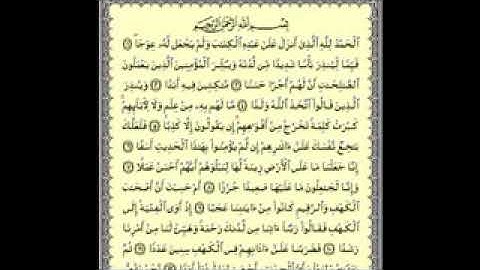 بِسْمِ اللَّهِ الرَّحْمَٰنِ الرَّحِيمِ
ٱلْحَمْدُ لِلَّهِ ٱلَّذِىٓ أَنزَلَ عَلَىٰ عَبْدِهِ ٱلْكِتَٰبَ وَلَمْ يَجْعَل لَّهُۥ عِوَجَا ۜ ١
قَيِّمًا لِّيُنذِرَ بَأْسًا شَدِيدًا مِّن لَّدُنْهُ وَيُبَشِّرَ ٱلْمُؤْمِنِينَ ٱلَّذِينَ يَعْمَلُونَ
ٱلصَّٰلِحَٰتِ أَنَّ لَهُمْ أَجْرًا حَسَنًا ٢ مَّٰكِثِينَ فِيهِ أَبَدًا ٣ وَيُنذِرَ
ٱلَّذِينَ قَالُوا۟ ٱتَّخَذَ ٱللَّهُ وَلَدًا ٤ مَّا لَهُم بِهِۦ مِنْ عِلْمٍ وَلَا لِـَٔابَآئِهِمْ
كَبُرَتْ كَلِمَةً تَخْرُجُ مِنْ أَفْوَٰهِهِمْ إِن يَقُولُونَ إِلَّا كَذِبًا ٥ فَلَعَلَّكَ
بَٰخِعٌ نَّفْسَكَ عَلَىٰٓ ءَاثَٰرِهِمْ إِن لَّمْ يُؤْمِنُوا۟ بِهَٰذَا ٱلْحَدِيثِ أَسَفًا ٦
إِنَّا جَعَلْنَا مَا عَلَى ٱلْأَرْضِ زِينَةً لَّهَا لِنَبْلُوَهُمْ أَيُّهُمْ أَحْسَنُ عَمَلًا ٧
وَإِنَّا لَجَٰعِلُونَ مَا عَلَيْهَا صَعِيدًا جُرُزًا ٨ أَمْ حَسِبْتَ أَنَّ أَصْحَٰبَ
ٱلْكَهْفِ وَٱلرَّقِيمِ كَانُوا۟ مِنْ ءَايَٰتِنَا عَجَبًا ٩ إِذْ أَوَى ٱلْفِتْيَةُ إِلَى
ٱلْكَهْفِ فَقَالُوا۟ رَبَّنَآ ءَاتِنَا مِن لَّدُنكَ رَحْمَةً وَهَيِّئْ لَنَا مِنْ أَمْرِنَا
رَشَدًا ١٠ فَضَرَبْنَا عَلَىٰٓ ءَاذَانِهِمْ فِى ٱلْكَهْفِ سِنِينَ عَدَدًا ١١